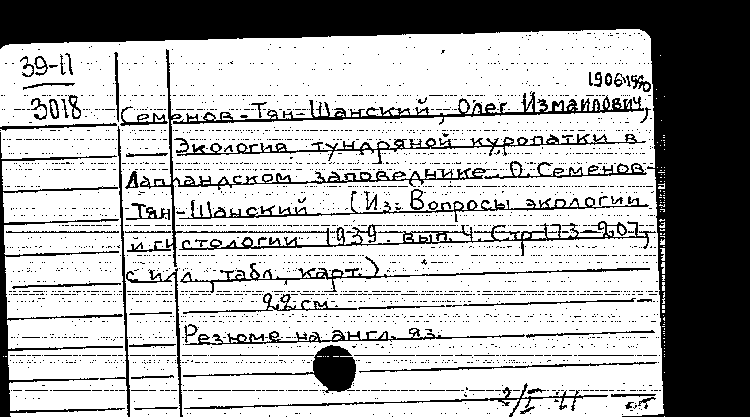 39-11
3018
1906-1990
Семенов-Тян-Шанский, Олег Измаилович,
Экология тундряной куропатки в
Лапландском заповеднике. О. Семенов-
Тян-Шанский (Из: Вопросы экологии
и гистологии 1939. вып. 4. Стр 173-207,
с илл., табл., карт.).
22 см.
Резюме на англ. яз.